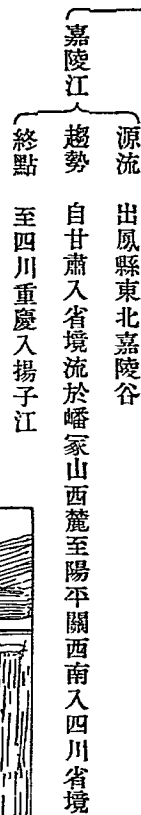 嘉陵江
源流　出鳳縣東北嘉陵谷
趨勢　自甘肅入省境流於嶓冢山西麓至陽平關西南入四川省境
終點　至四川重慶入揚子江